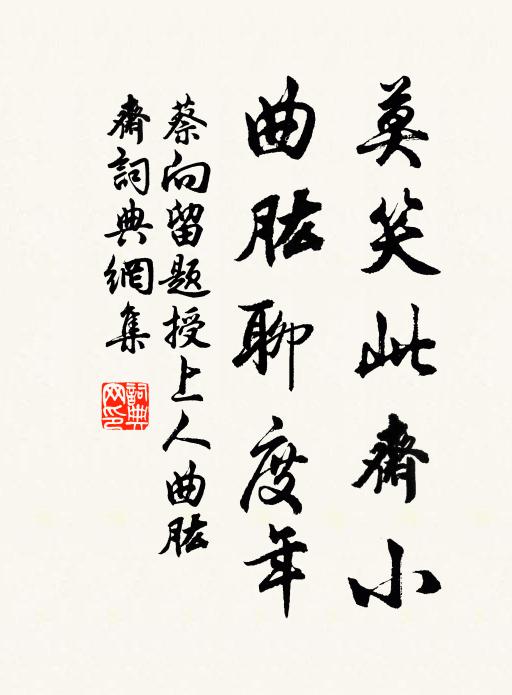 莫笑此齋小
曲肱聊度年
蔡向留題授上人曲肱
齋詞典網集
詞典網印